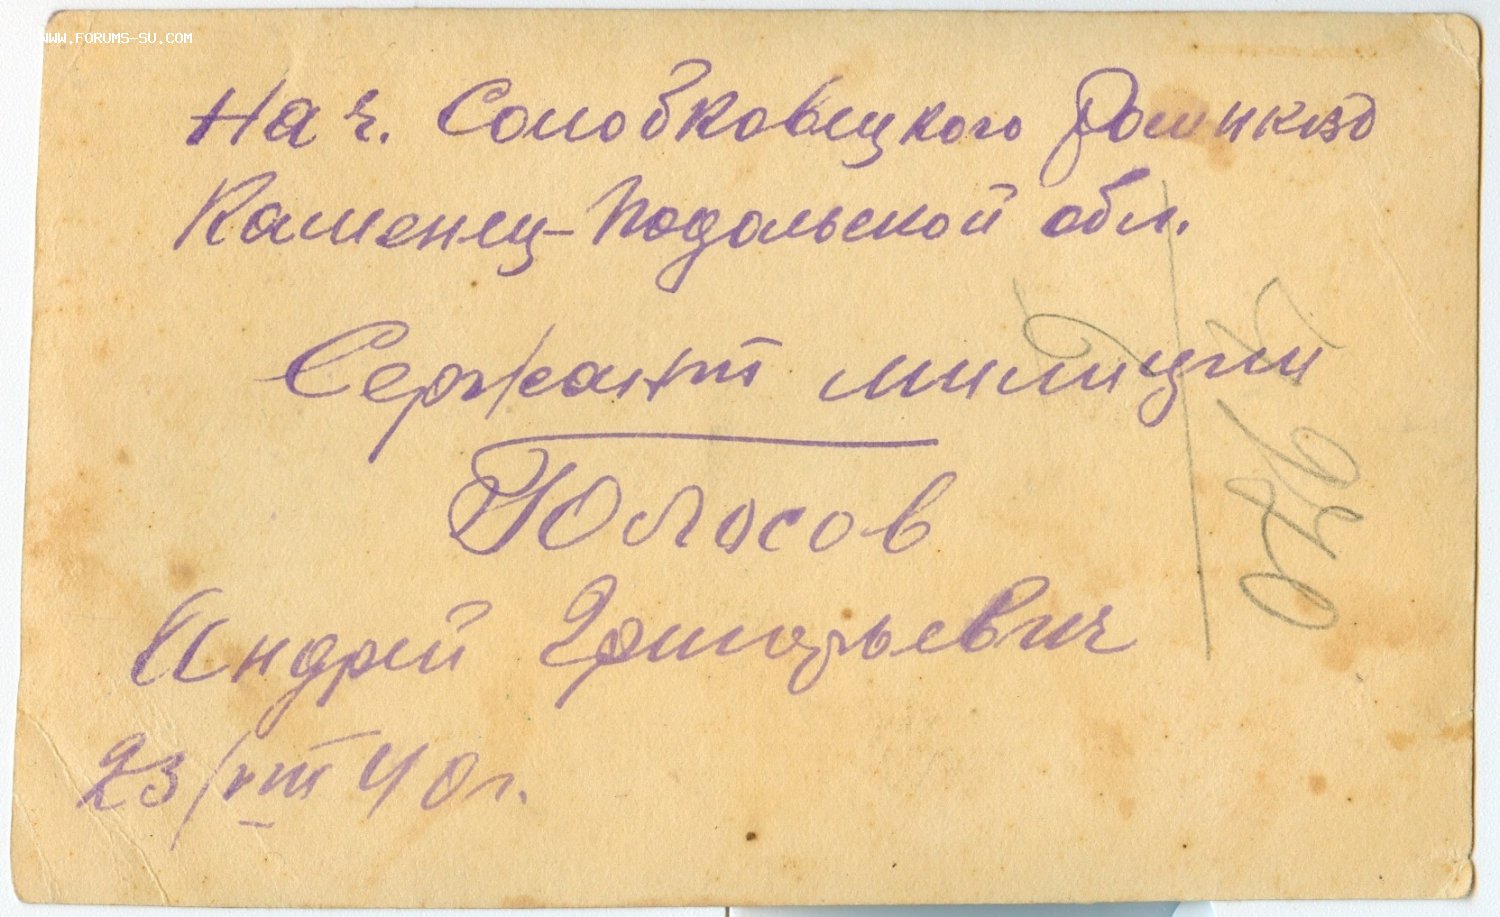 WWW.FORUMS-SU.COM
Нач. Солобковецкого
Каменец-Подольской обл.
Сержант милиции
Андрей Григорьевич
23/VIII 40 г.